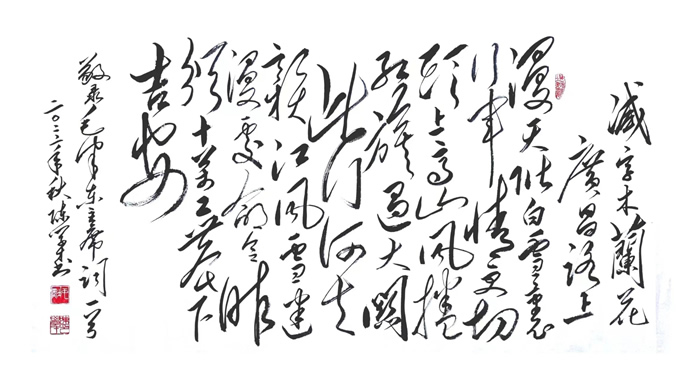 減字木蘭花
廣昌路上
漫天皆白雪裏
行軍情更切
頭上高山風捲
紅旗過大關
此行何去
贛江風雪迷
漫處命令昨
頒十萬工農下
吉安
敬录毛泽东主席词一首
年秋陈书